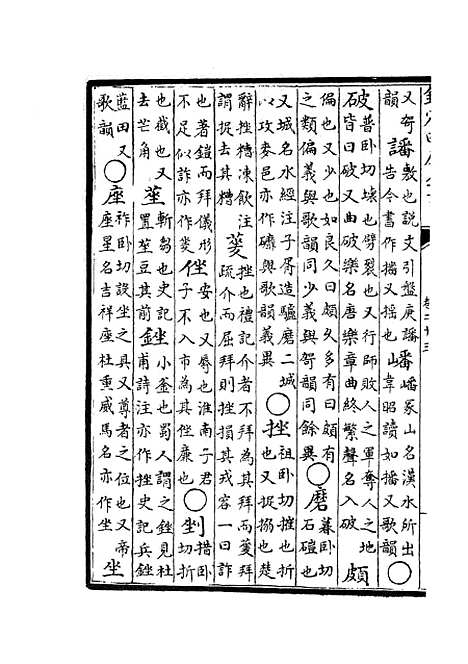 又哿韻譒敷也説文引盤庚譒告今書作播又揺也嶓嶓冢山名漢水所出山韋昭讀如播又歌韻○
破普卧切壊也劈裂也又行師敗人之軍奪人之地皆曰破又曲破樂名唐樂章曲終繁聲名入破頗
偏也又少也如良久曰頗久多有曰頗有之類偏義與歌韻同少義與哿韻同餘異○磨暮卧切石磑也
又城名水經注子胥造驢磨二城以攻麥邑亦作䃺與歌韻義異○挫祖卧切摧也折也又捉搦也楚
辭挫糟凍飲注謂捉去其糟夎挫也禮記介者不拜為其拜而夎拜疏介而屈拜則挫損其戎容一曰詐
也著鎧而拜儀形不足似詐亦作蓌侳安也又辱也淮南子君子不入市為其侳廉也○剉措卧切折
也截也又去芒角莝斬芻也史記置莝豆其前銼小釜也蜀人謂之銼見杜甫詩注亦作挫史記兵銼
藍田又歌韻○座祚卧切設坐之具又尊者之位也又帝座星名吉祥座杜重威馬名亦作坐坐